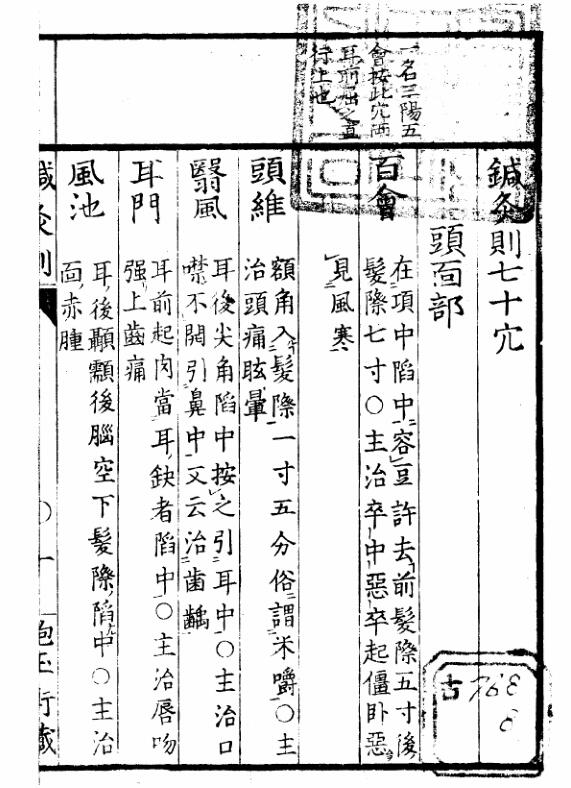 一名三陽五
會按此穴両
耳前屈之直
行上也
鍼灸則七十穴
頭面部
百會
在頂中陷中容豆許去前髮際五寸後
髮際七寸○主治卒中惡卒起僵臥惡
見風寒
頭維
額角入髮際一寸五分俗謂米嚼○主
治頭痛眩暈
翳風
耳後尖角陷中按之引耳中○主治口
噤不開引鼻中又云治齒齲
耳門
耳前起肉當耳缺者陷中○主治唇吻
强上齒痛
風池
耳後顳顬後腦空下髮際陷中○主治
面赤腫
鍼灸則
○十
古
768
3